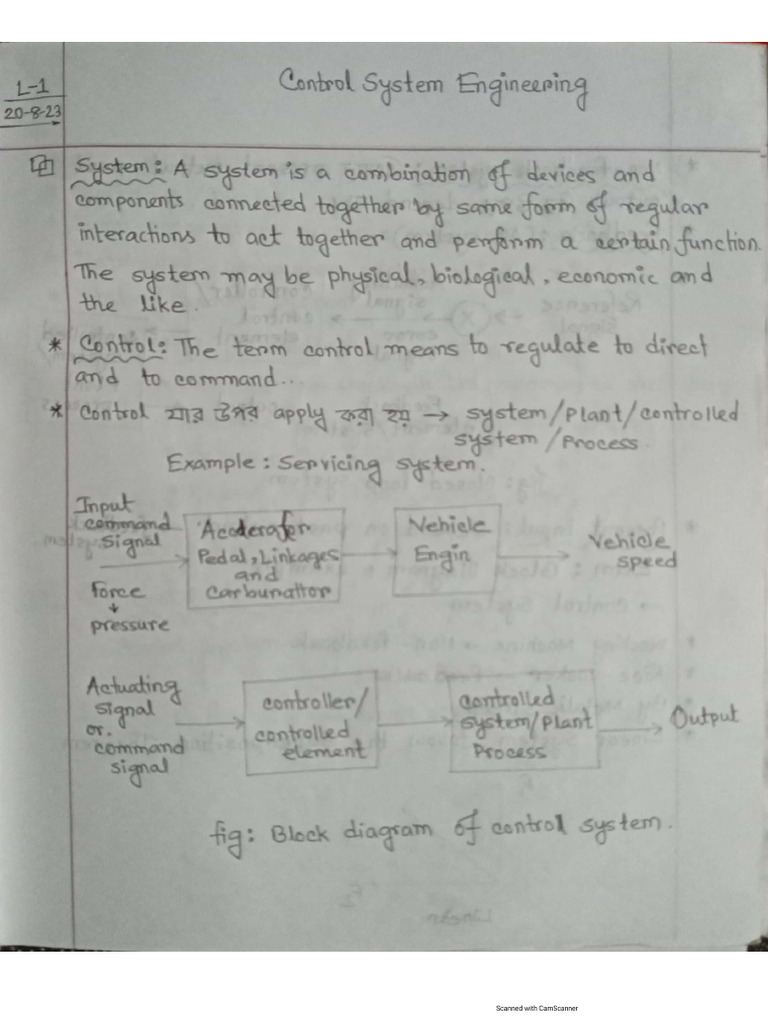 L-1
20-8-23
Control System Engineering
System: A system is a combination of devices and
components connected together by same form of regular
interactions to act together and perform a certain function.
The system may be physical, biological, economic and
the like.
* Control: The term control means to regulate to direct
and to command..
* Control যার উপর apply করা হয় → system/plant/controlled
system/Process.
Example: Servicing system.
Input
command
signal
Force
↓
pressure
Accderafer
Pedal, Linkages
and
carbunattor
Vehicle
Engin
Vehicle
speed
Actuating
signal
or.
command
signal
controller/
controlled
element
controlled
system/plant
Process
Output
fig: Block diagram of control system.
Scanned with CamScanner